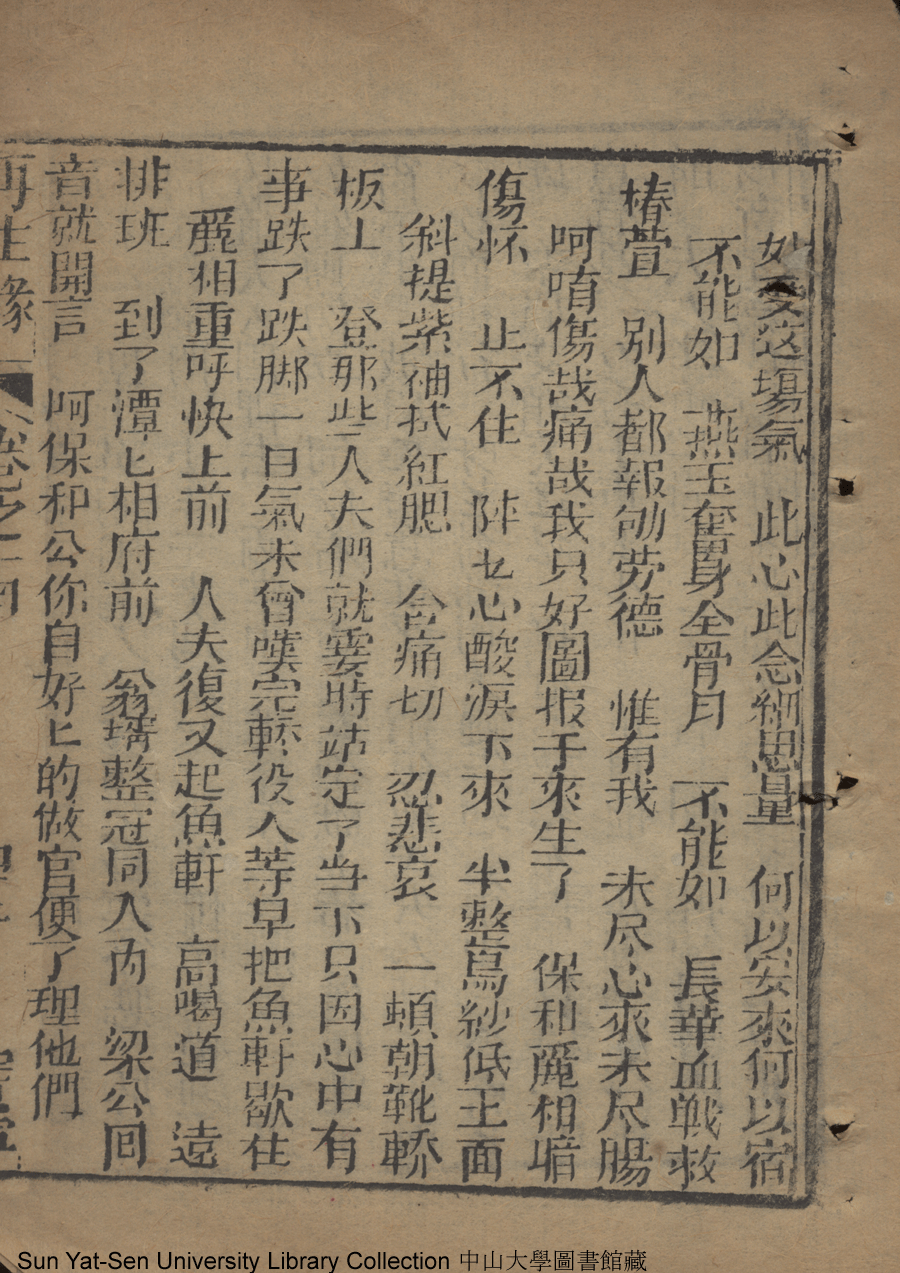 妙受这塲氣　此心此念細思量　何以安來何以宿
不能如　燕玉奮身全骨月　不能如　長華血戦救
椿萱　别人都報劬劳德　惟有我　未尽心來未尽腸
呵唷傷哉痛哉我只好圖报于來生了　保和麗相暗
傷怀　止不住　陣乜心酸淚下來　半整烏紗低玉面
斜提紫袖拭紅腮　含痛切　忍悲哀　一頓朝靴轎
板上　登那些人夫們就霎時站定了当下只因心中有
事跌了跌脚一口氣未曾嘆完轎役人等早把魚軒歇住
麗相重呼快上前　人夫復又起魚軒　高喝道　遠
排班　到了潭匕相府前　翁壻整冠同入內　梁公回
音就開言　呵保和公你自好匕的做官便了理他們
再生緣　卷之十四
Sun Yat-Sen University Library Collection 中山大學圖書館藏